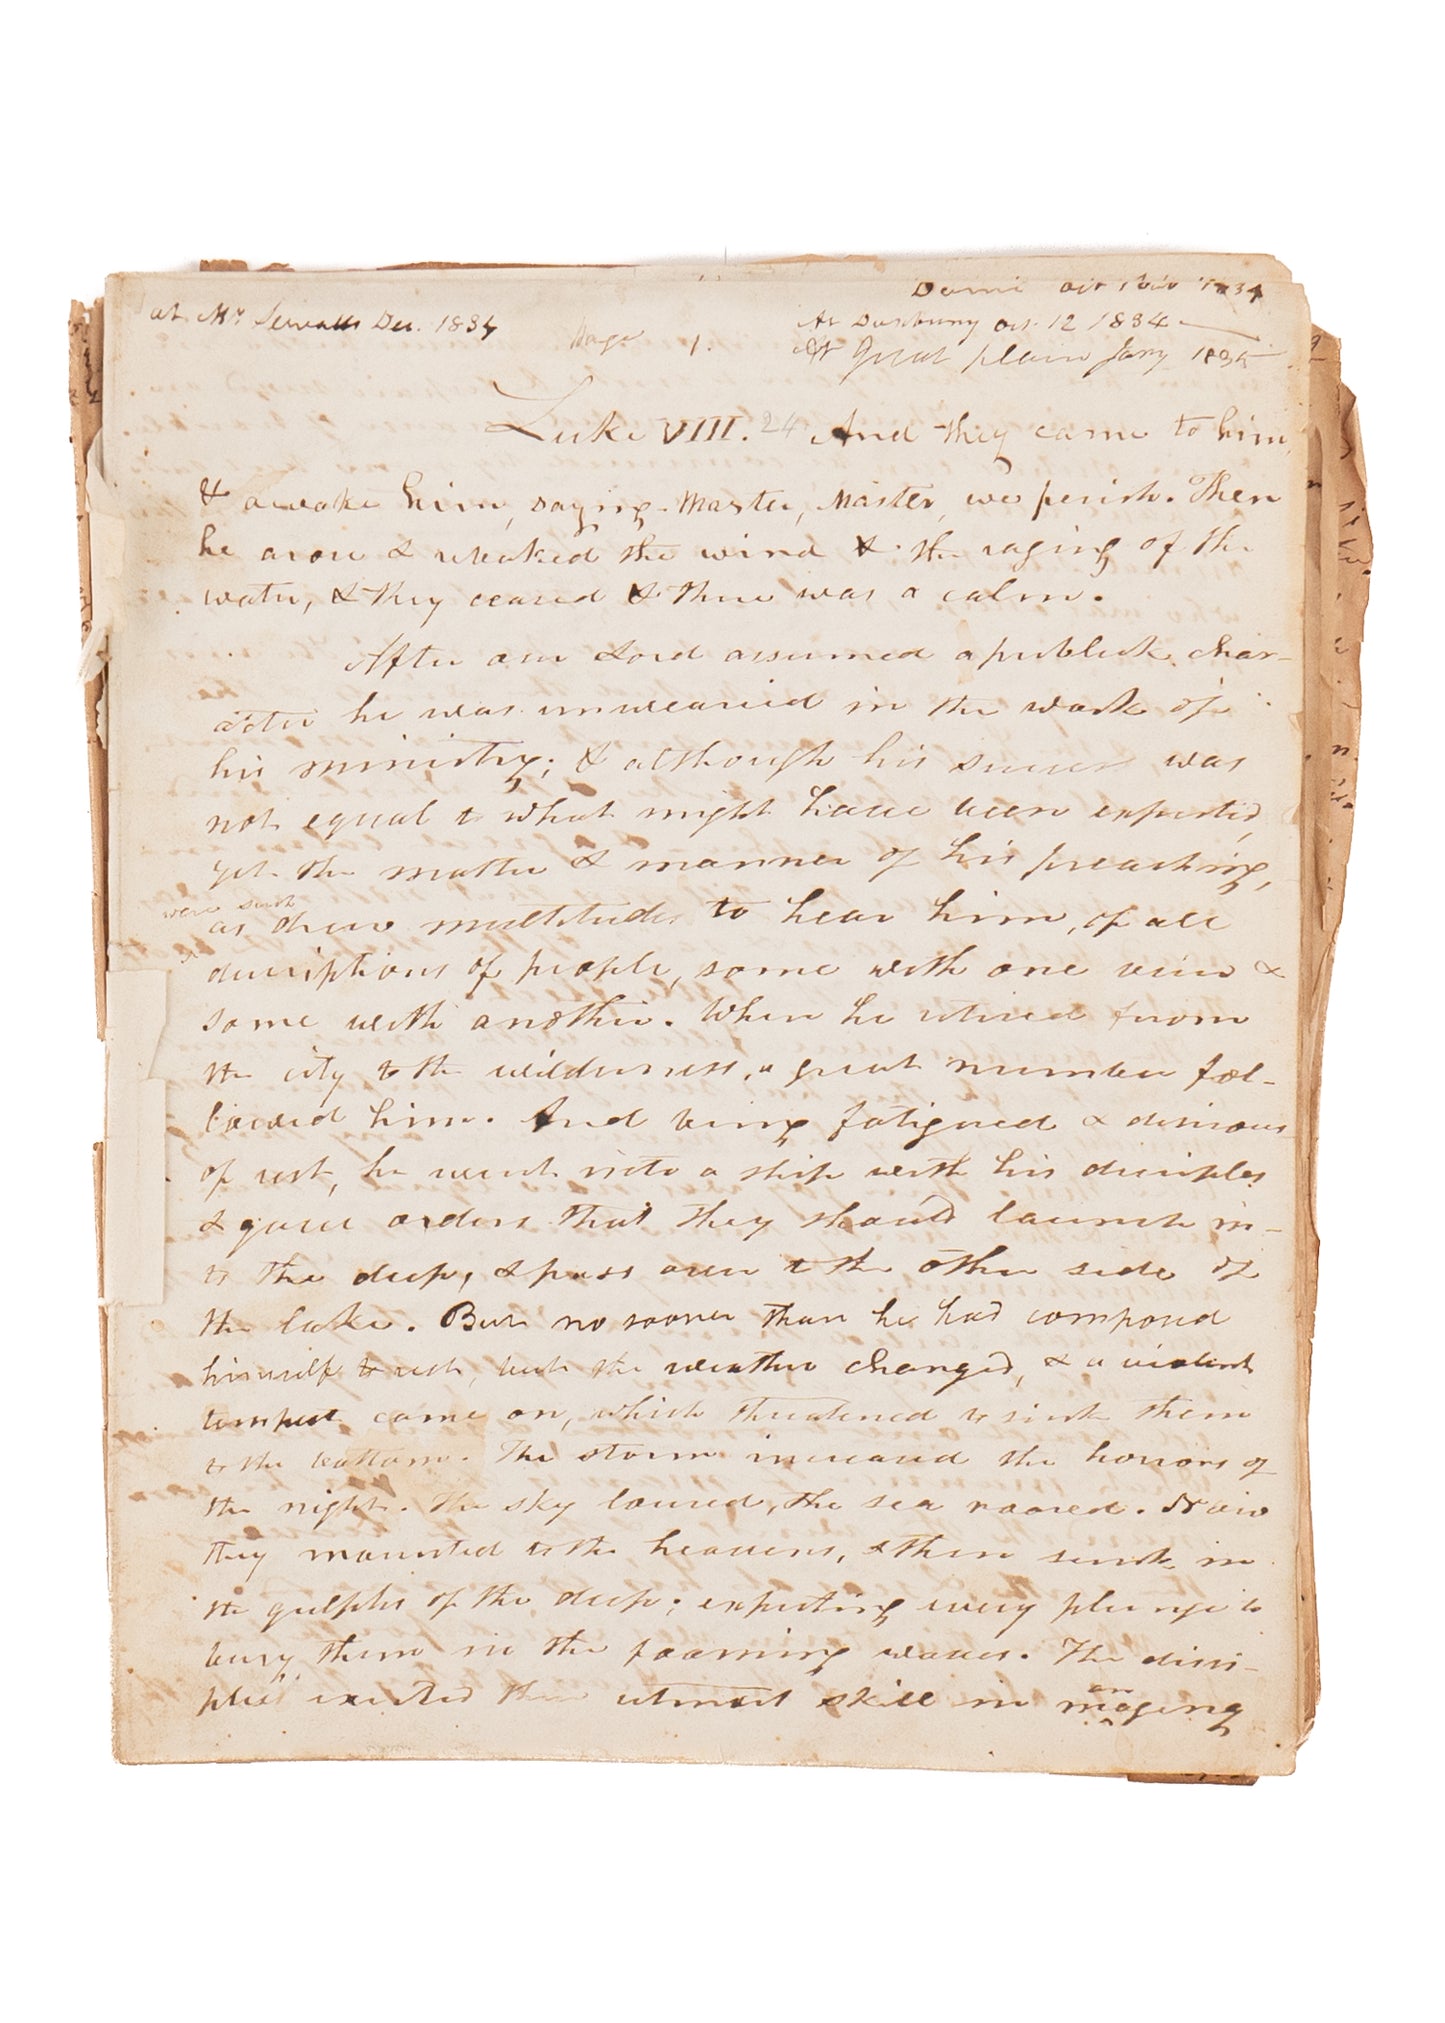 at Mr Sewalls Dec. 1834
Page 1.
Oct 1834
At Duxbury oct. 12 1834
At Great plain Jany 1835
Luke VIII. 24 And they came to him,
& awoke him, saying Master, Master, we perish. Then
he arose & rebuked the wind & the raging of the
water, & they ceased & there was a calm.
After our Lord assumed a publick char-
acter he was unwearied in the work of
his ministry; & although his success was
not equal to what might have been expected,
yet the matter & manner of his preaching,
were such
as drew multitudes to hear him, of all
descriptions of people, some with one view &
some with another. When he retired from
the city to the wilderness, a great number fol-
lowed him. And being fatigued & desirous
of rest, he went into a ship with his disciples
& gave orders that they should launch in-
to the deep, & pass over to the other side of
the lake. But no sooner than he had composed
himself to rest, but the weather changed, & a violent
tempest came on, which threatened to sink them
to the bottom. The storm increased the horrors of
the night. The sky loured, the sea roared. Now
they mounted to the heavens, & then sunk in
the gulphs of the deep; expecting every plunge to
bury them in the foaming waves. The disci-
ples exerted their utmost skill in
an
maging